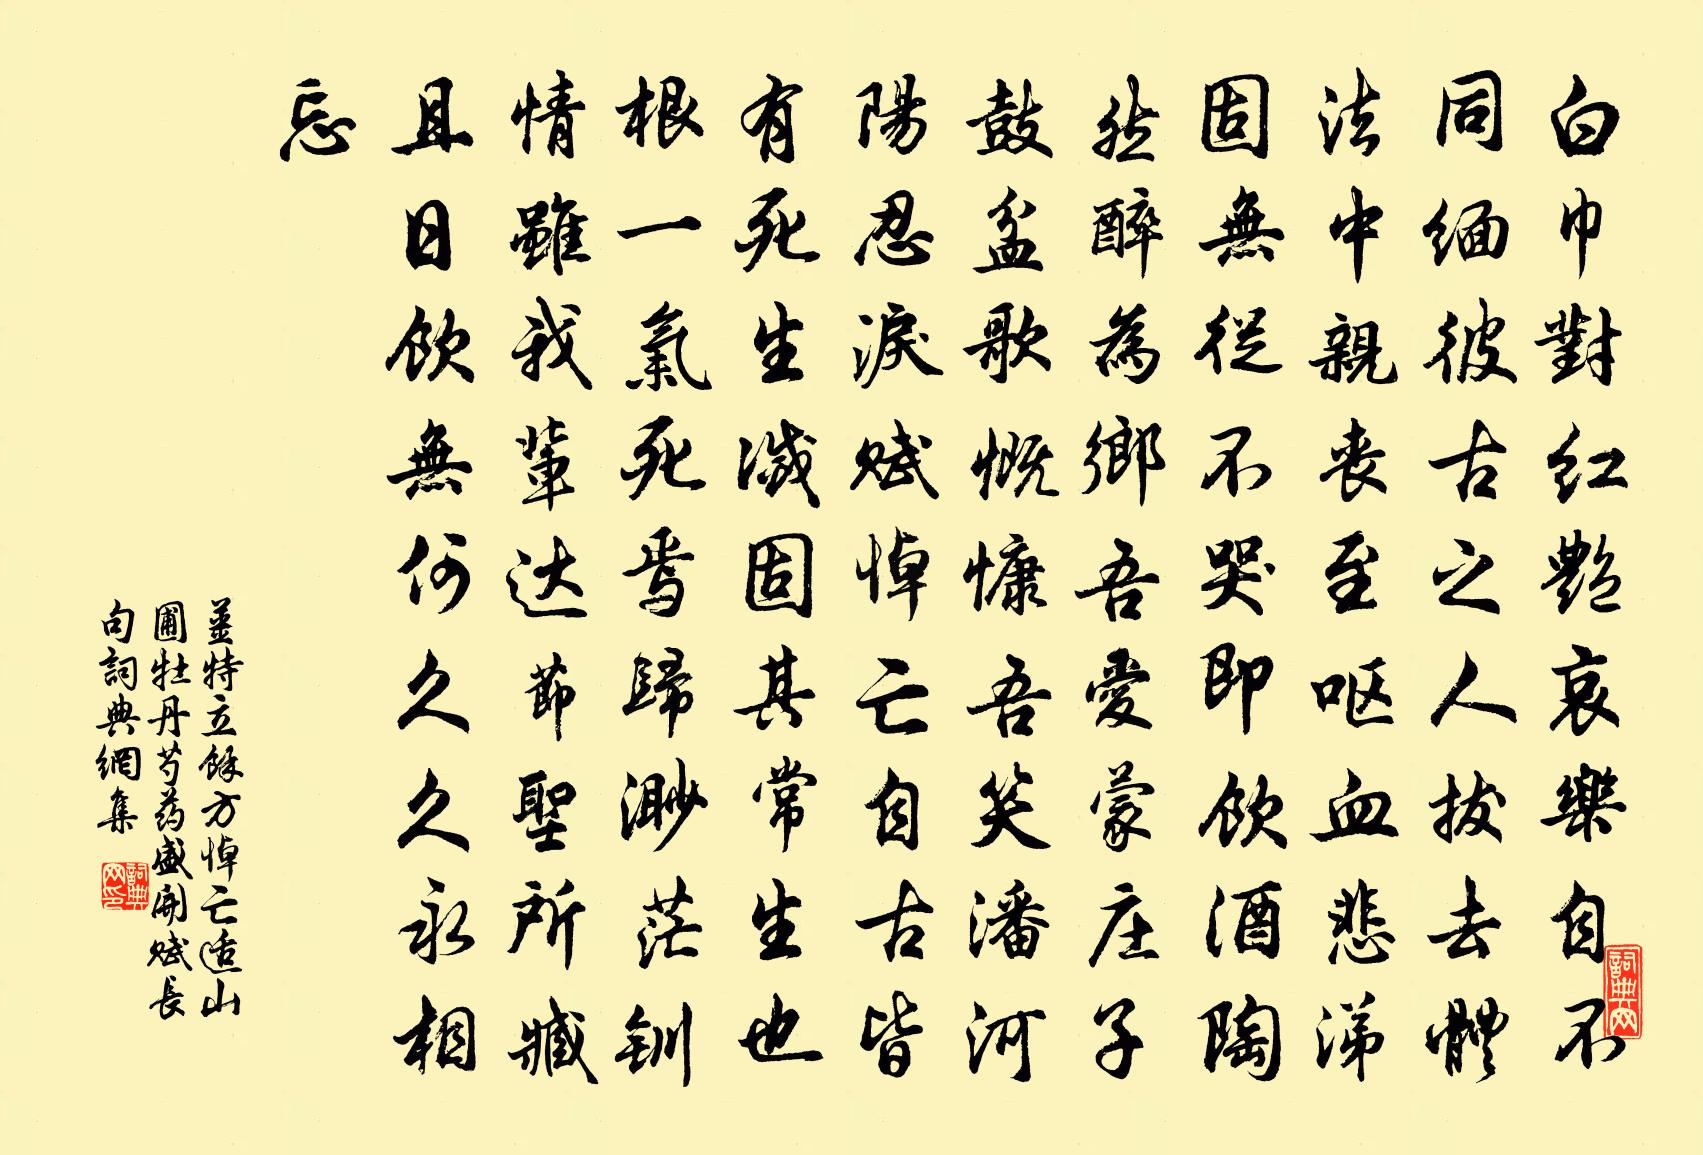 白巾對紅艷哀樂自不
同缅彼古之人拔去體
法中親丧至呕血悲涕
固無從不哭即飲酒陶
然醉為鄉吾愛蒙庄子
鼓盆歌慨慷吾笑潘河
陽忍淚赋悼亡自古皆
有死生滅固其常生也
根一氣死焉歸渺茫钏
情雖我輩达節聖所臧
且日飲無何久久永相
忘
薑特立餘方悼亡适山
圃牡丹芍药盛開赋長
句詞典網集
詞典网印
詞典网